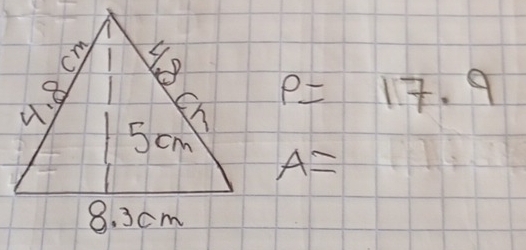 4.8 cm
4.8 cm
5cm
8.3cm
P= 17.9
A=